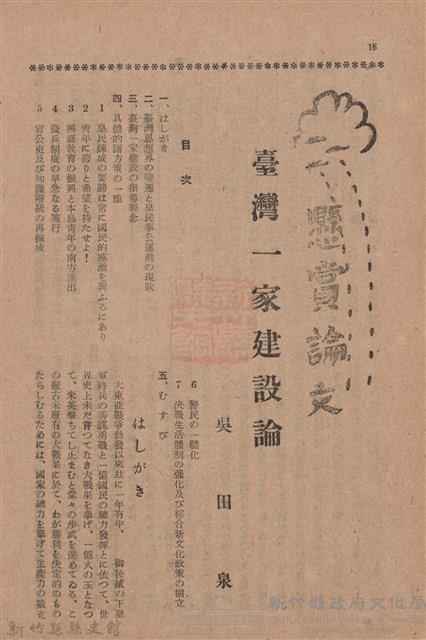 16
懸賞論文
臺灣一家建設論
吳田泉
目次
一、はしがき
二、臺灣思想界の變遷と皇民奉公運動の現狀
三、臺灣一家建設の指導理念
四、具體的諸方策の一班
1 皇民鍊成の要諦は常に國民的感激を與ふるにあり
2 青年に誇りと希望を持たせよ!
3 興亞敎育の振興と本島青年の南方進出
4 徵兵制度の早急なる施行
5 官公吏及び知識階級の再鍊成
6 警民の一體化
7 決戰生活體制の强化及び綜合新文化政策の樹立
五、むすび
はしがき
大東亞戰爭勃發以來玆に一年有半、 御稜威の下皇
軍將兵の善謀勇戰と一億國民の總力發揮とに依つて、世
界史上未だ曾つてなき大戰果を擧げ、一億火の玉となつ
て、米英擊ちてし止まむと堂々の步武を進めてゐる、こ
の振古未曾有の大戰果に於て、わが勝利を決定的のもの
たらしむるためには、國家の總力を擧げて生産力の擴充
新竹縣政府文化局
新竹縣縣史館